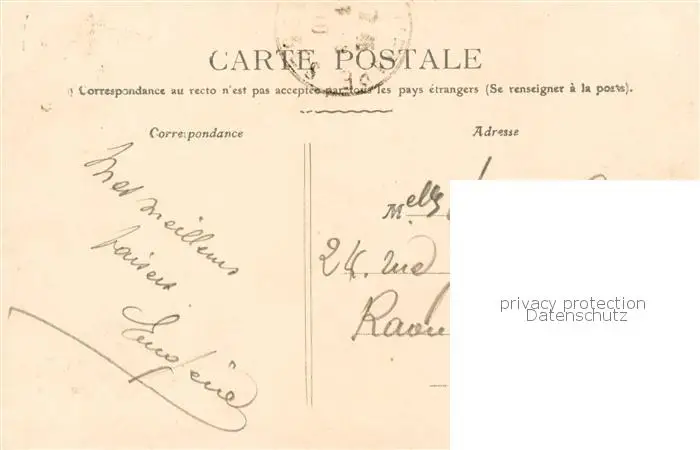 CARTE POSTALE
Correspondance au recto n'est pas acceptée par tous les pays étrangers (Se renseigner à la poste).
Correspondance
Adresse
Mes meilleurs
baisers
Eugénie
Melle
24. rue
Raon
privacy protection
Datenschutz